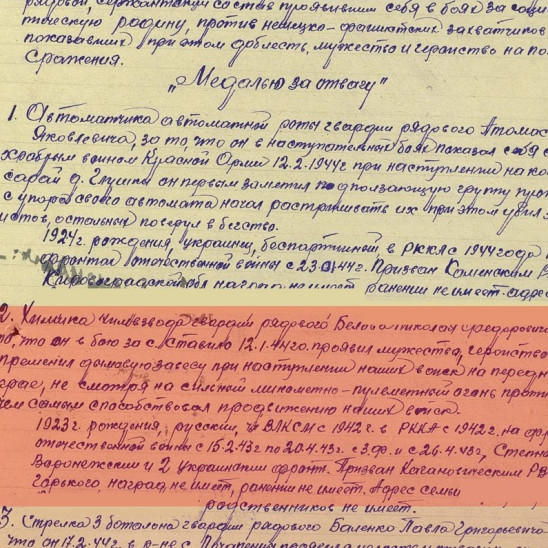 рядовой, сержантский состав проявившим себя в боях за соци
тическую родину, против немецко-фашистских захватчиков
показавших при этом доблесть, мужество и геройство на по
Сражения.
„Медалью за отвагу"
1. Автоматчика автоматной роты гвардии рядового Атомас
Яковлевича, за то, что он в наступательных боях показал себя с
храбрым воином Красной Орми 12.2.1944г при наступлении на ко
сарай д. Глушки он первым заметил подползающую группу прот
с упора своего автомата начал расстреливать их при этом убил
истов, остальных повергул в бегство.
1924г. рождения, украинец, беспартийный в РККА с 1944 года
фронтах отечественной войны с 23.01.44г. Призван Каменским
Кировоградской обл наград не имеет ранении не имеет адрес
2. Химика химвзвода гвардии рядового Николая Федорович
то, что он в бою за с. Ставило 12.1.44го. проявил мужество, геройство
дымовую завесу при наступлении наших войск на передн
крае, не смотря на сильный минометно-пулеметный огонь проти
чем самым способствовал продвижению наших войск.
1923г рождения, русский, чл ВЛКСМ с 1942г. в РККА с 1942г. на фр
отечественной войны с 15.2.43г по 20.4.43г. с.з.фр. и с 26.4.43г., Степно
Воронежский и 2 украинский фронт. Призван Кагановическим РВ
Горького наград не имеет, ранении не имеет. Адрес семьи
родственников не имеет.
3. Стрелка 3 батолона гвардии рядового Баленко Павла Григорьевич
что он 17.2.44г. в р-не с.